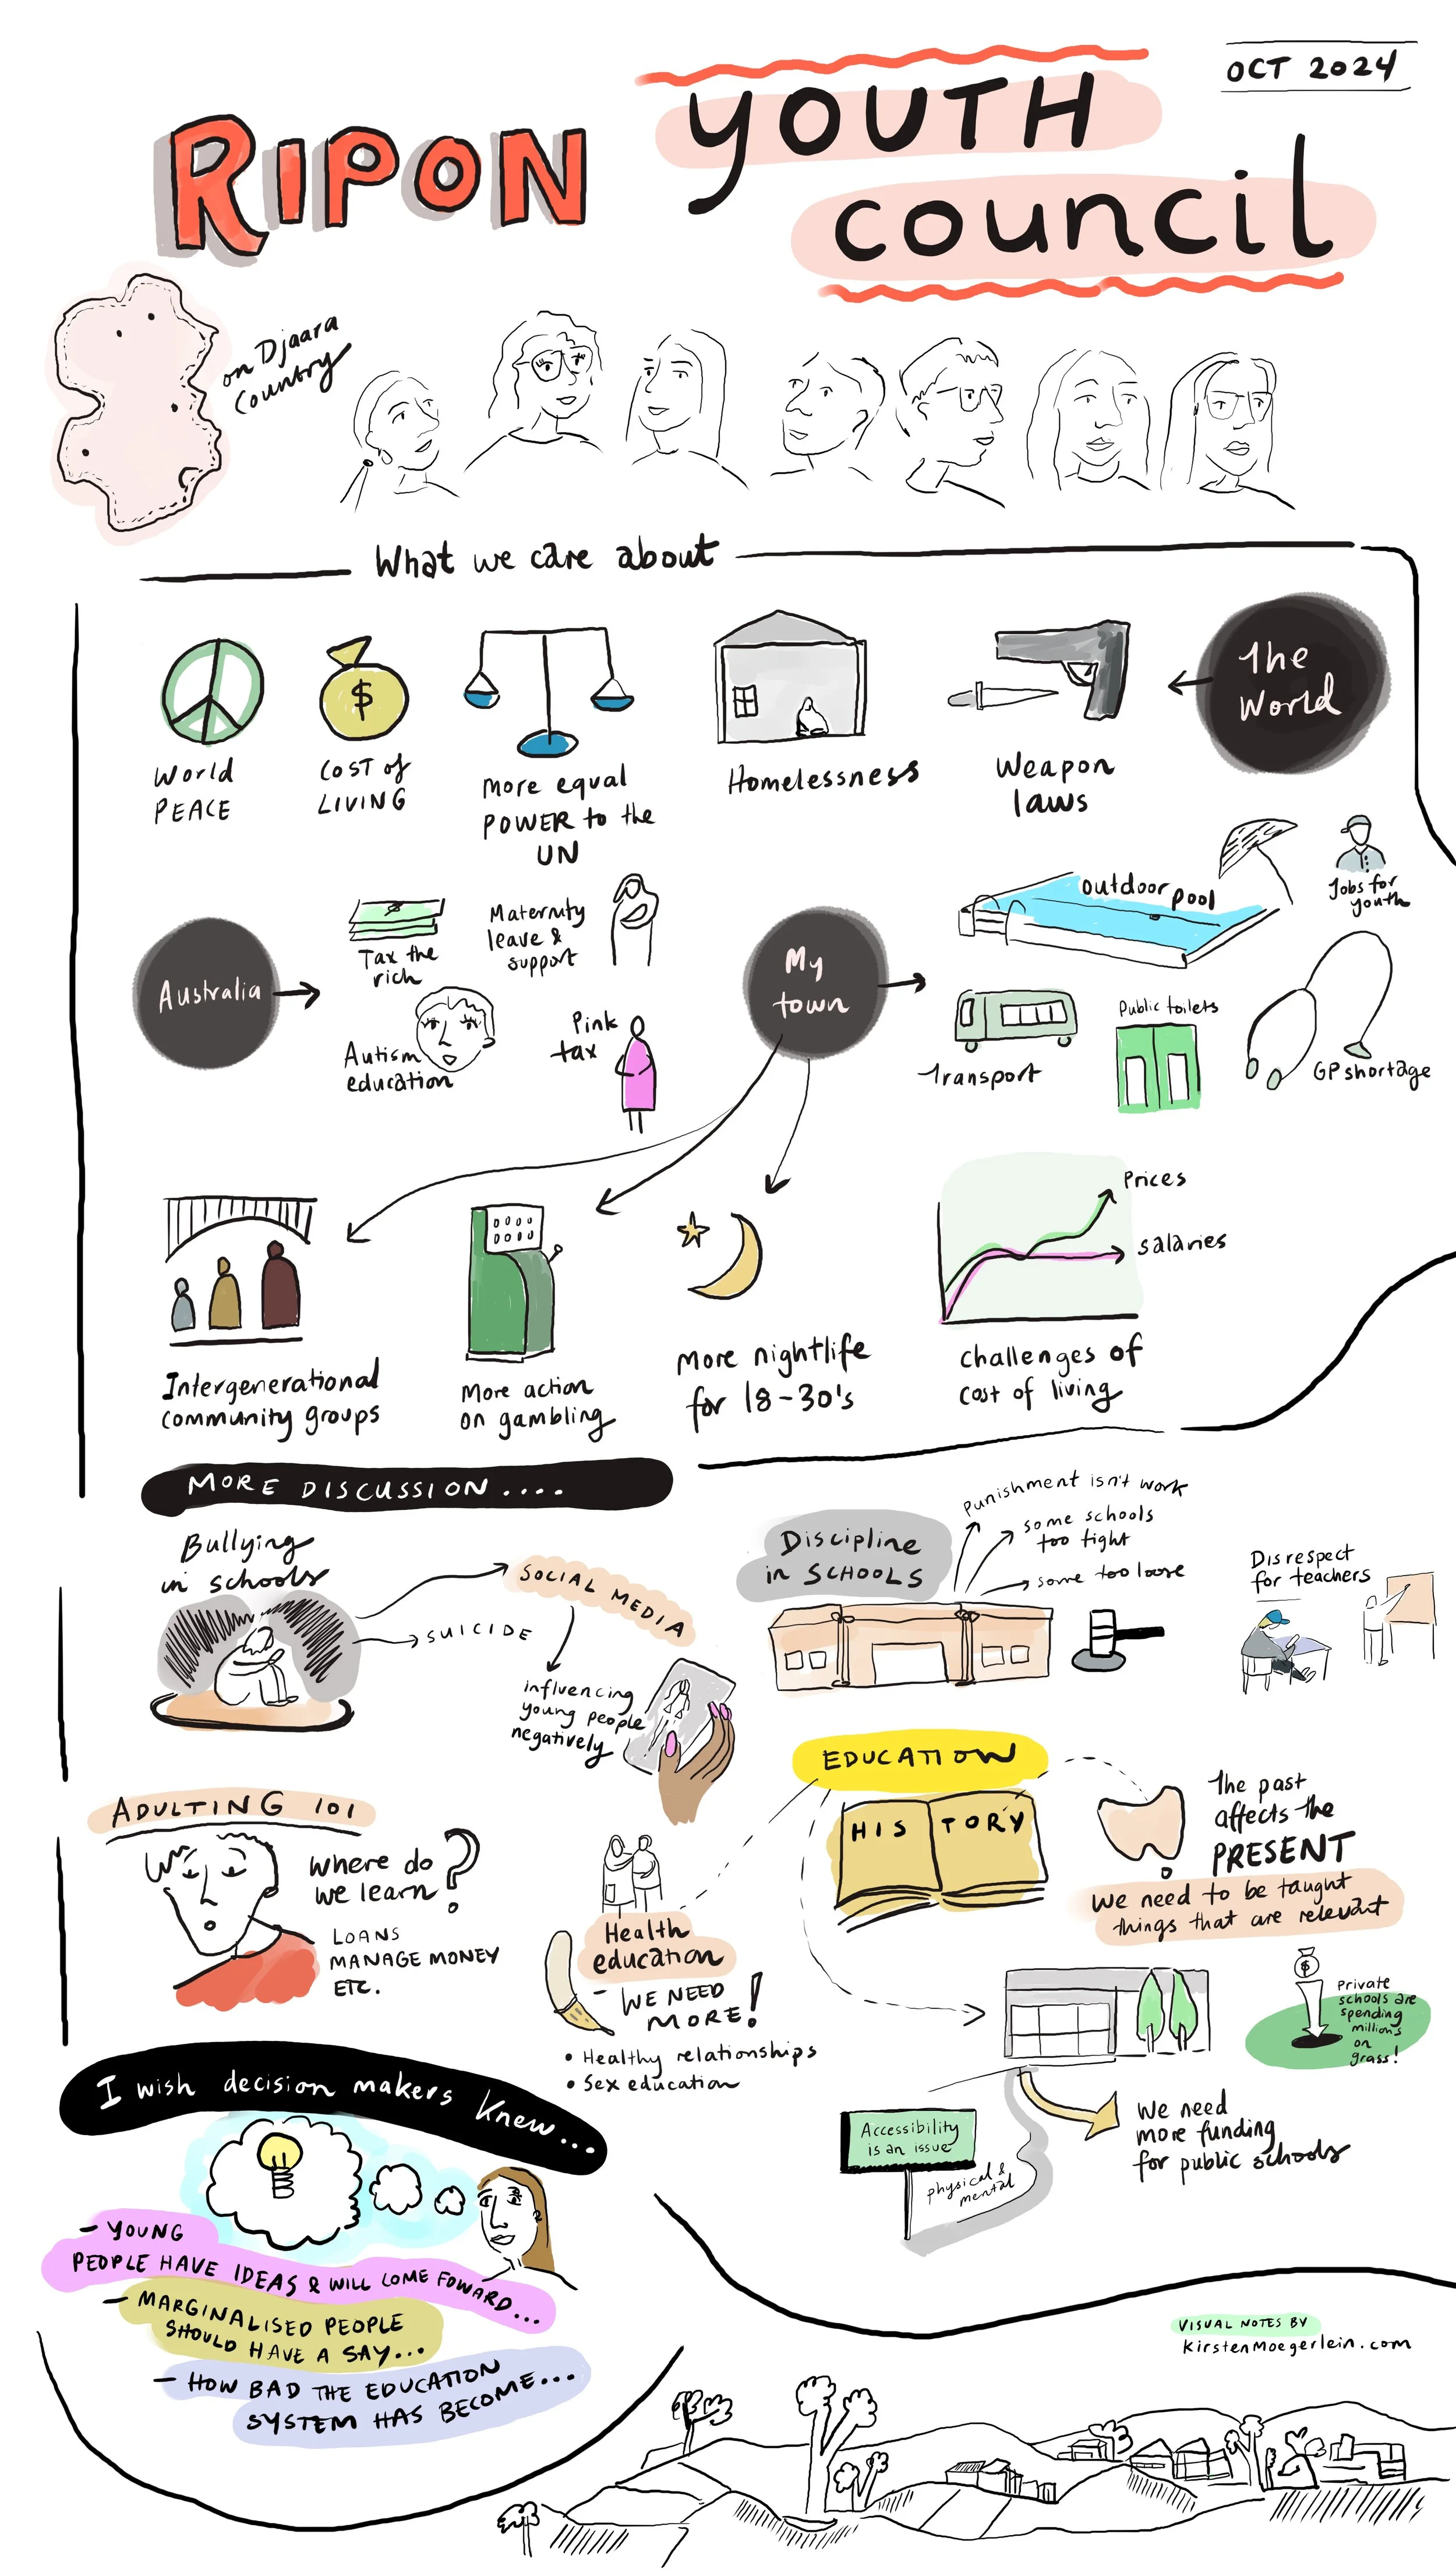 OCT 2024
RIPON
YOUTH
council
on Djaara
Country
What we care about
The
World
World
PEACE
COST of
LIVING
$
More equal
POWER to the
UN
Homelessness
Weapon
laws
Australia
$
Tax the
rich
Maternity
leave &
support
Autism
education
Pink
tax
My
town
outdoor pool
Jobs for
youth
Transport
Public toilets
GP shortage
Intergenerational
community groups
More action
on gambling
More nightlife
for 18-30's
Prices
salaries
challenges of
cost of living
MORE DISCUSSION....
Bullying
in schools
SOCIAL MEDIA
SUICIDE
influencing
young people
negatively
Discipline
in SCHOOLS
Punishment isn't work
some schools
too tight
some too loose
Disrespect
for teachers
ADULTING 101
Where do
we learn?
LOANS
MANAGE MONEY
ETC.
EDUCATION
HISTORY
The past
affects the
PRESENT
We need to be taught
things that are relevant
Health
education
- WE NEED
MORE!
• Healthy relationships
• Sex education
$
Private
schools are
spending
millions
on
grass!
We need
more funding
for public schools
Accessibility
is an issue
physical &
mental
I wish decision makers knew...
- YOUNG
PEOPLE HAVE IDEAS & WILL COME FOWARD...
- MARGINALISED PEOPLE
SHOULD HAVE A SAY...
- HOW BAD THE EDUCATION
SYSTEM HAS BECOME...
VISUAL NOTES BY
KirstenMoegerlein.com